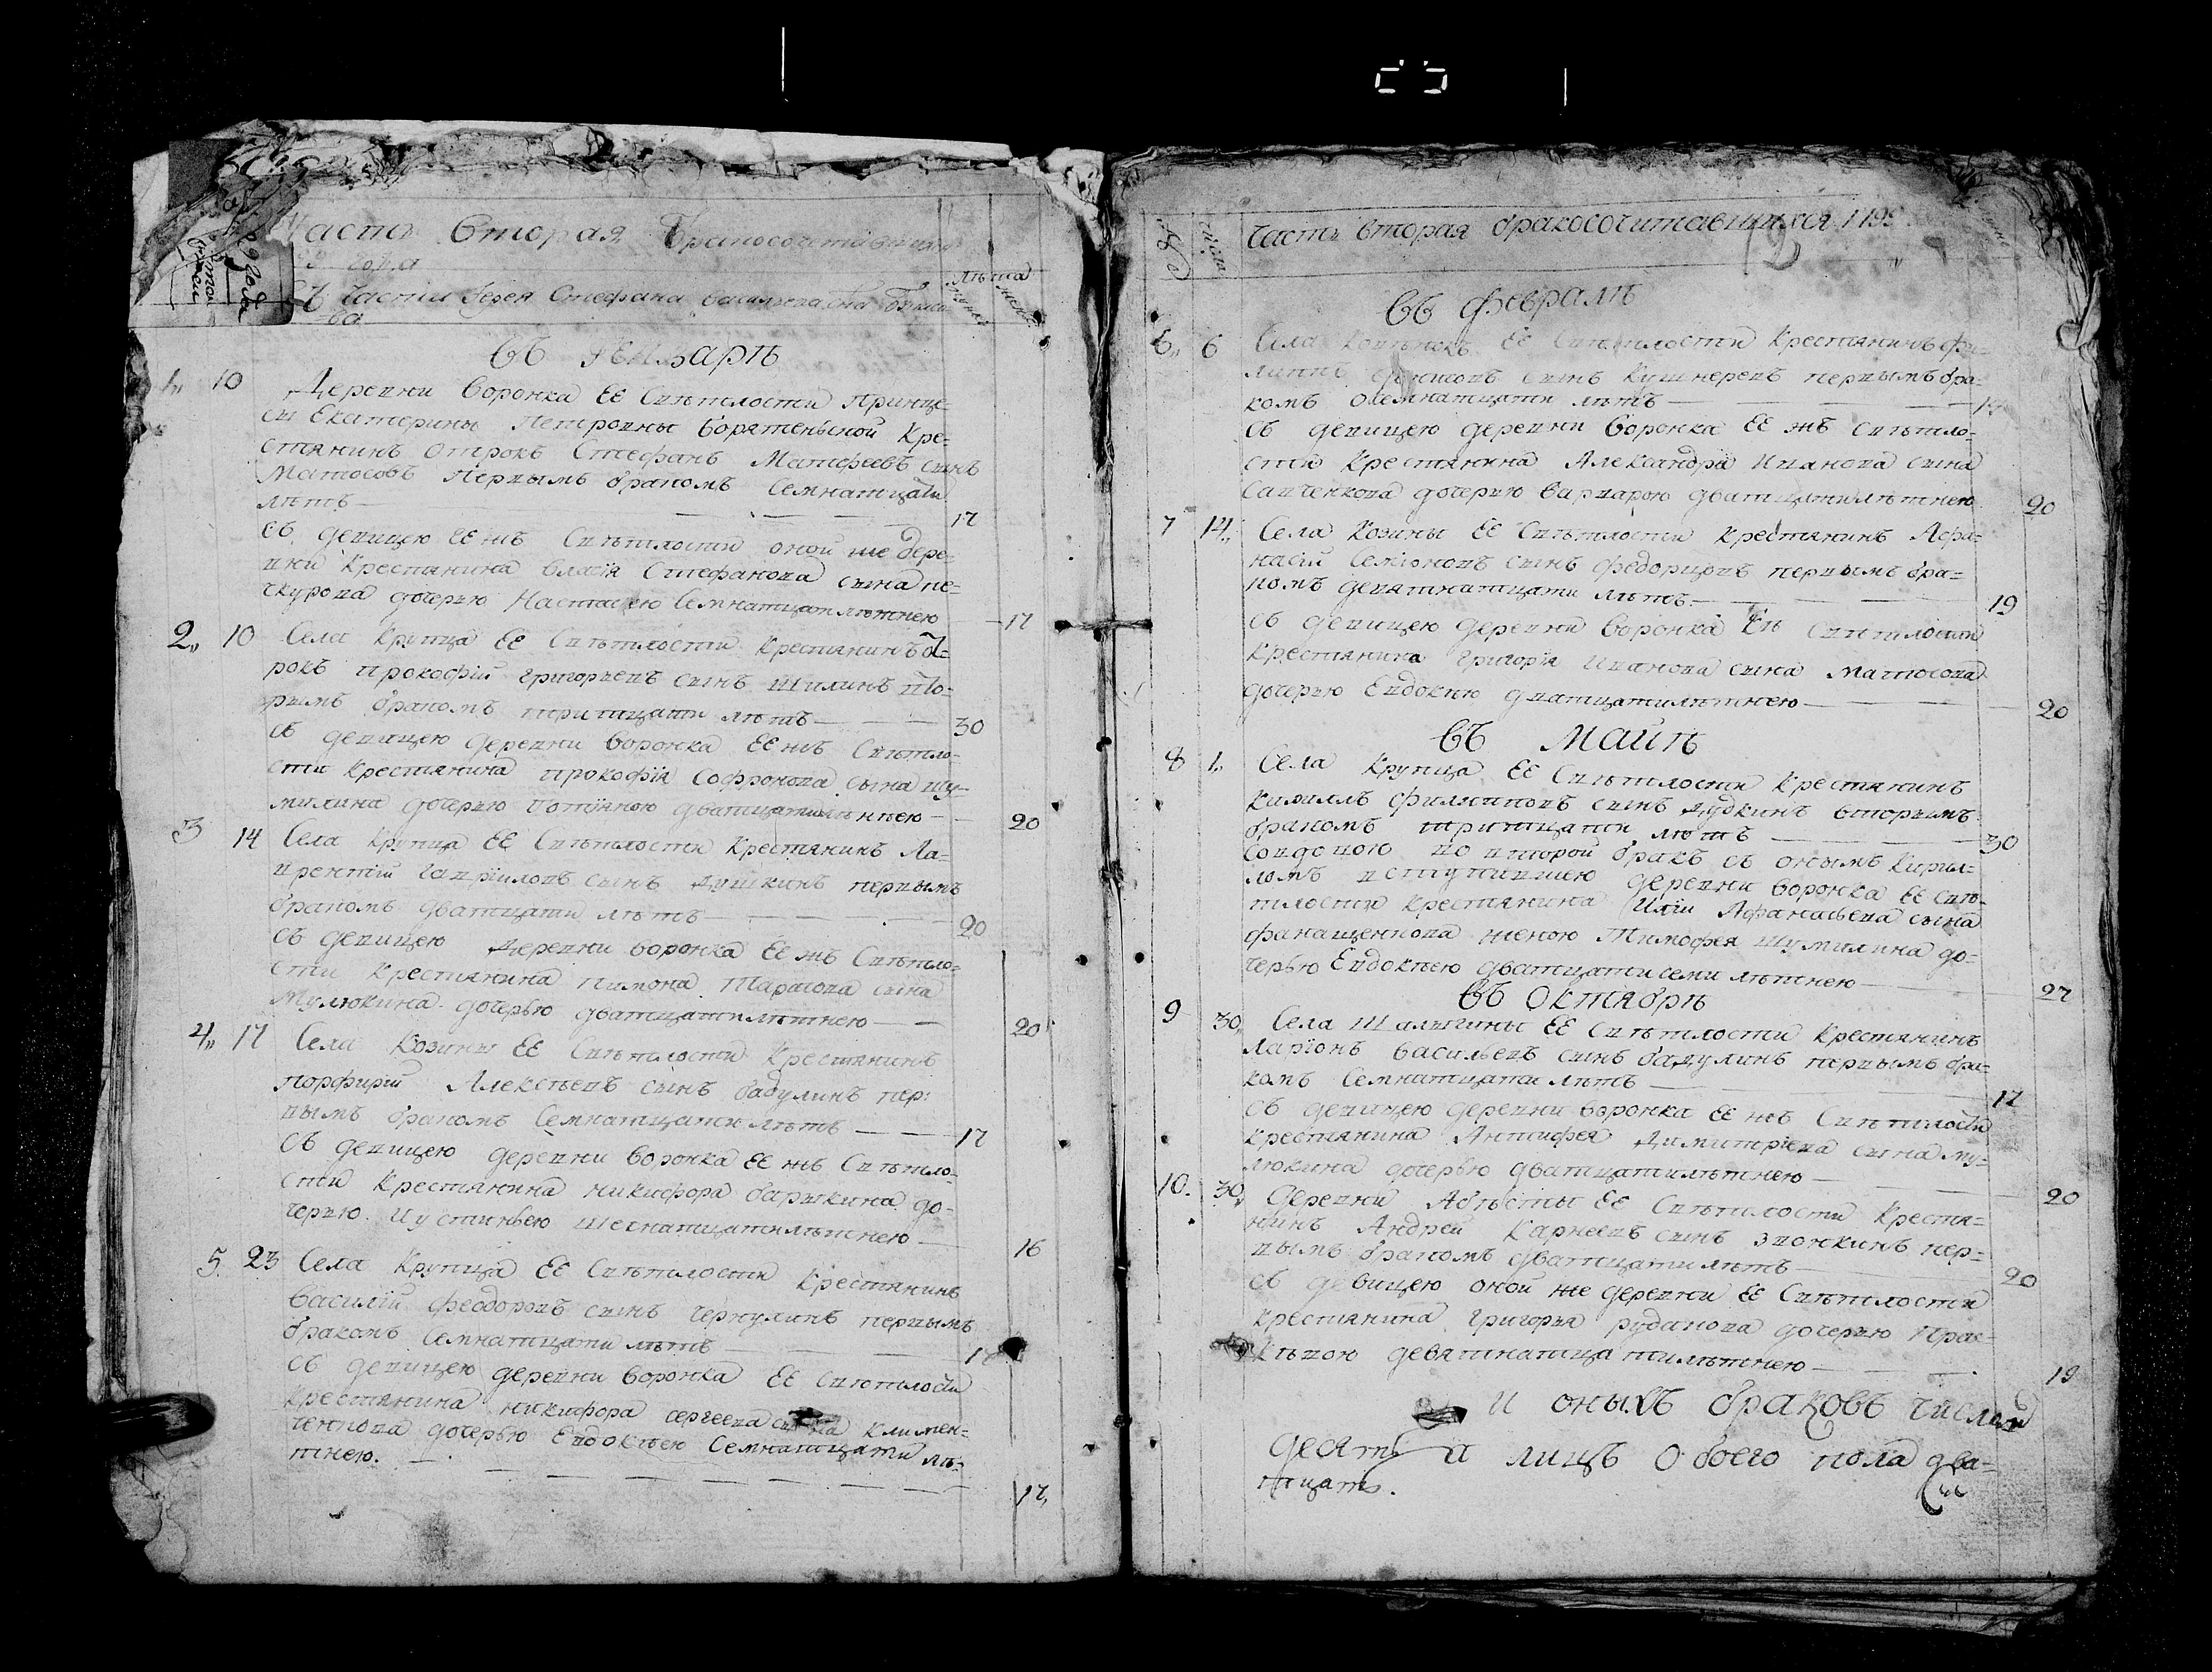 Часть Вторая Бракосочетавшихся
года
Части Іерея Стефана Васильева сна
ва
лѣта
Въ Генварѣ
1,, 10 Деревни Воронка ЕЕ Свѣтлости Принце-
сы Екатерины Петровны Борятеньской Кре-
стянинъ Отрокъ Стефанъ Матфеевъ сынъ
Матюсовъ Первымъ бракомъ Семнатцати
лѣтъ 17
съ девицею ЕЕ жъ Свѣтлости оной же дере-
вни Крестянина Власія Стефанова сына пе-
чкурова дочерью Настасею Семнатцатилѣтнею 17
2,, 10 Села Крупца ЕЕ Свѣтлости Крестянинъ От-
рокъ Прокофій григорьевъ сынъ Шилинъ вто-
рымъ бракомъ тритцати лѣтъ 30
съ девицею деревни Воронка ЕЕ жъ Свѣтло-
сти Крестянина Прокофія Софронова сына шу-
милина дочерью Татіяною дватцатилѣтнею 20
3 14 Села Крупца ЕЕ Свѣтлости Крестянинъ Ла-
врентій Гавріиловъ сынъ Душкинъ первымъ
бракомъ дватцати лѣтъ 20
съ девицею Деревни Воронка ЕЕ жъ Свѣтло-
сти Крестянина Пимона Тарасова сына
Мулюкина дочерью дватцатилѣтнею 20
4,, 17 Села Козины ЕЕ Свѣтлости Крестянинъ
порфирій Алексѣевъ сынъ бадулинъ пер-
вымъ бракомъ Семнатцати лѣтъ 17
Съ девицею деревни Воронка ЕЕ жъ Свѣтло-
сти Крестянина никифора барыкина до-
черью Иустиньею Шеснатцатилѣтнею 16
5. 23 Села Крупца ЕЕ Свѣтлости Крестянинъ
Василій феодоровъ сынъ Чернулинъ первымъ
бракомъ Семнатцати лѣтъ
съ девицею деревни Воронка ЕЕ Свѣтлости
Крестянина никифора сергеева сына Климен-
ченкова дочерью Евдокѣею Семнатцати лѣ-
тнею. 17,
Часть вторая бракосочитавшихся 179
Въ Февралѣ
6,, 6 Села ЕЕ Свѣтлости Крестянинъ фи-
липпъ сынъ Кушнеревъ первымъ бра-
комъ осемнатцати лѣтъ
съ девицею деревни Воронка ЕЕ жъ Свѣтло-
сти Крестянина Александра Иванова сына
Савченкова дочерью Варварою дватцатилѣтнею 20
7 14,, Села Козины ЕЕ Свѣтлости Крестянинъ Афа-
насій Семіоновъ сынъ федорцовъ первымъ бра-
комъ девятнатцати лѣтъ. 19
съ девицею деревни Воронка Ея Свѣтлости
Крестянина григорія Иванова сына Матюсова
дочерью Евдокѣю дватцатилѣтнею 20
Въ Маийѣ
8 1,, Села Крупца ЕЕ Свѣтлости Крестянинъ
Кириллъ филипповъ сынъ Дудкинъ вторымъ
бракомъ тритцати лѣтъ 30
Совдовою во второй бракъ съ онымъ Кирил-
ломъ вступившею деревни Воронка ЕЕ Свѣ-
тлости Крестянина Иліи Афанасьева сына
фанащенкова женою Тимофея Шумилина до-
черью Евдокѣею дватцатисеми лѣтнею 27
Въ Октябрѣ
9 30,, Села Шалыгины ЕЕ Свѣтлости Крестянинъ
Ларіонъ Васильевъ сынъ бадулинъ первымъ бра-
комъ Семнатцати лѣтъ 17
съ девицею деревни Воронка ЕЕ жъ Свѣтлости
Крестянина Антифея Димитріева сына му-
люкина дочерью дватцатилѣтнею 20
10. 30,, Деревни ЕЕ Свѣтлости Крестя-
нинъ Андрей Карнеевъ сынъ Звонкинъ пер-
вымъ бракомъ дватцати лѣтъ 20
съ девицею оной же деревни ЕЕ Свѣтлости
Крестянина Григорья рудакова дочерью Прас-
ковьею девятнатцатилѣтнею 19
И оныхъ браковъ числомъ
десять а лицъ Обоего пола два-
тцать.